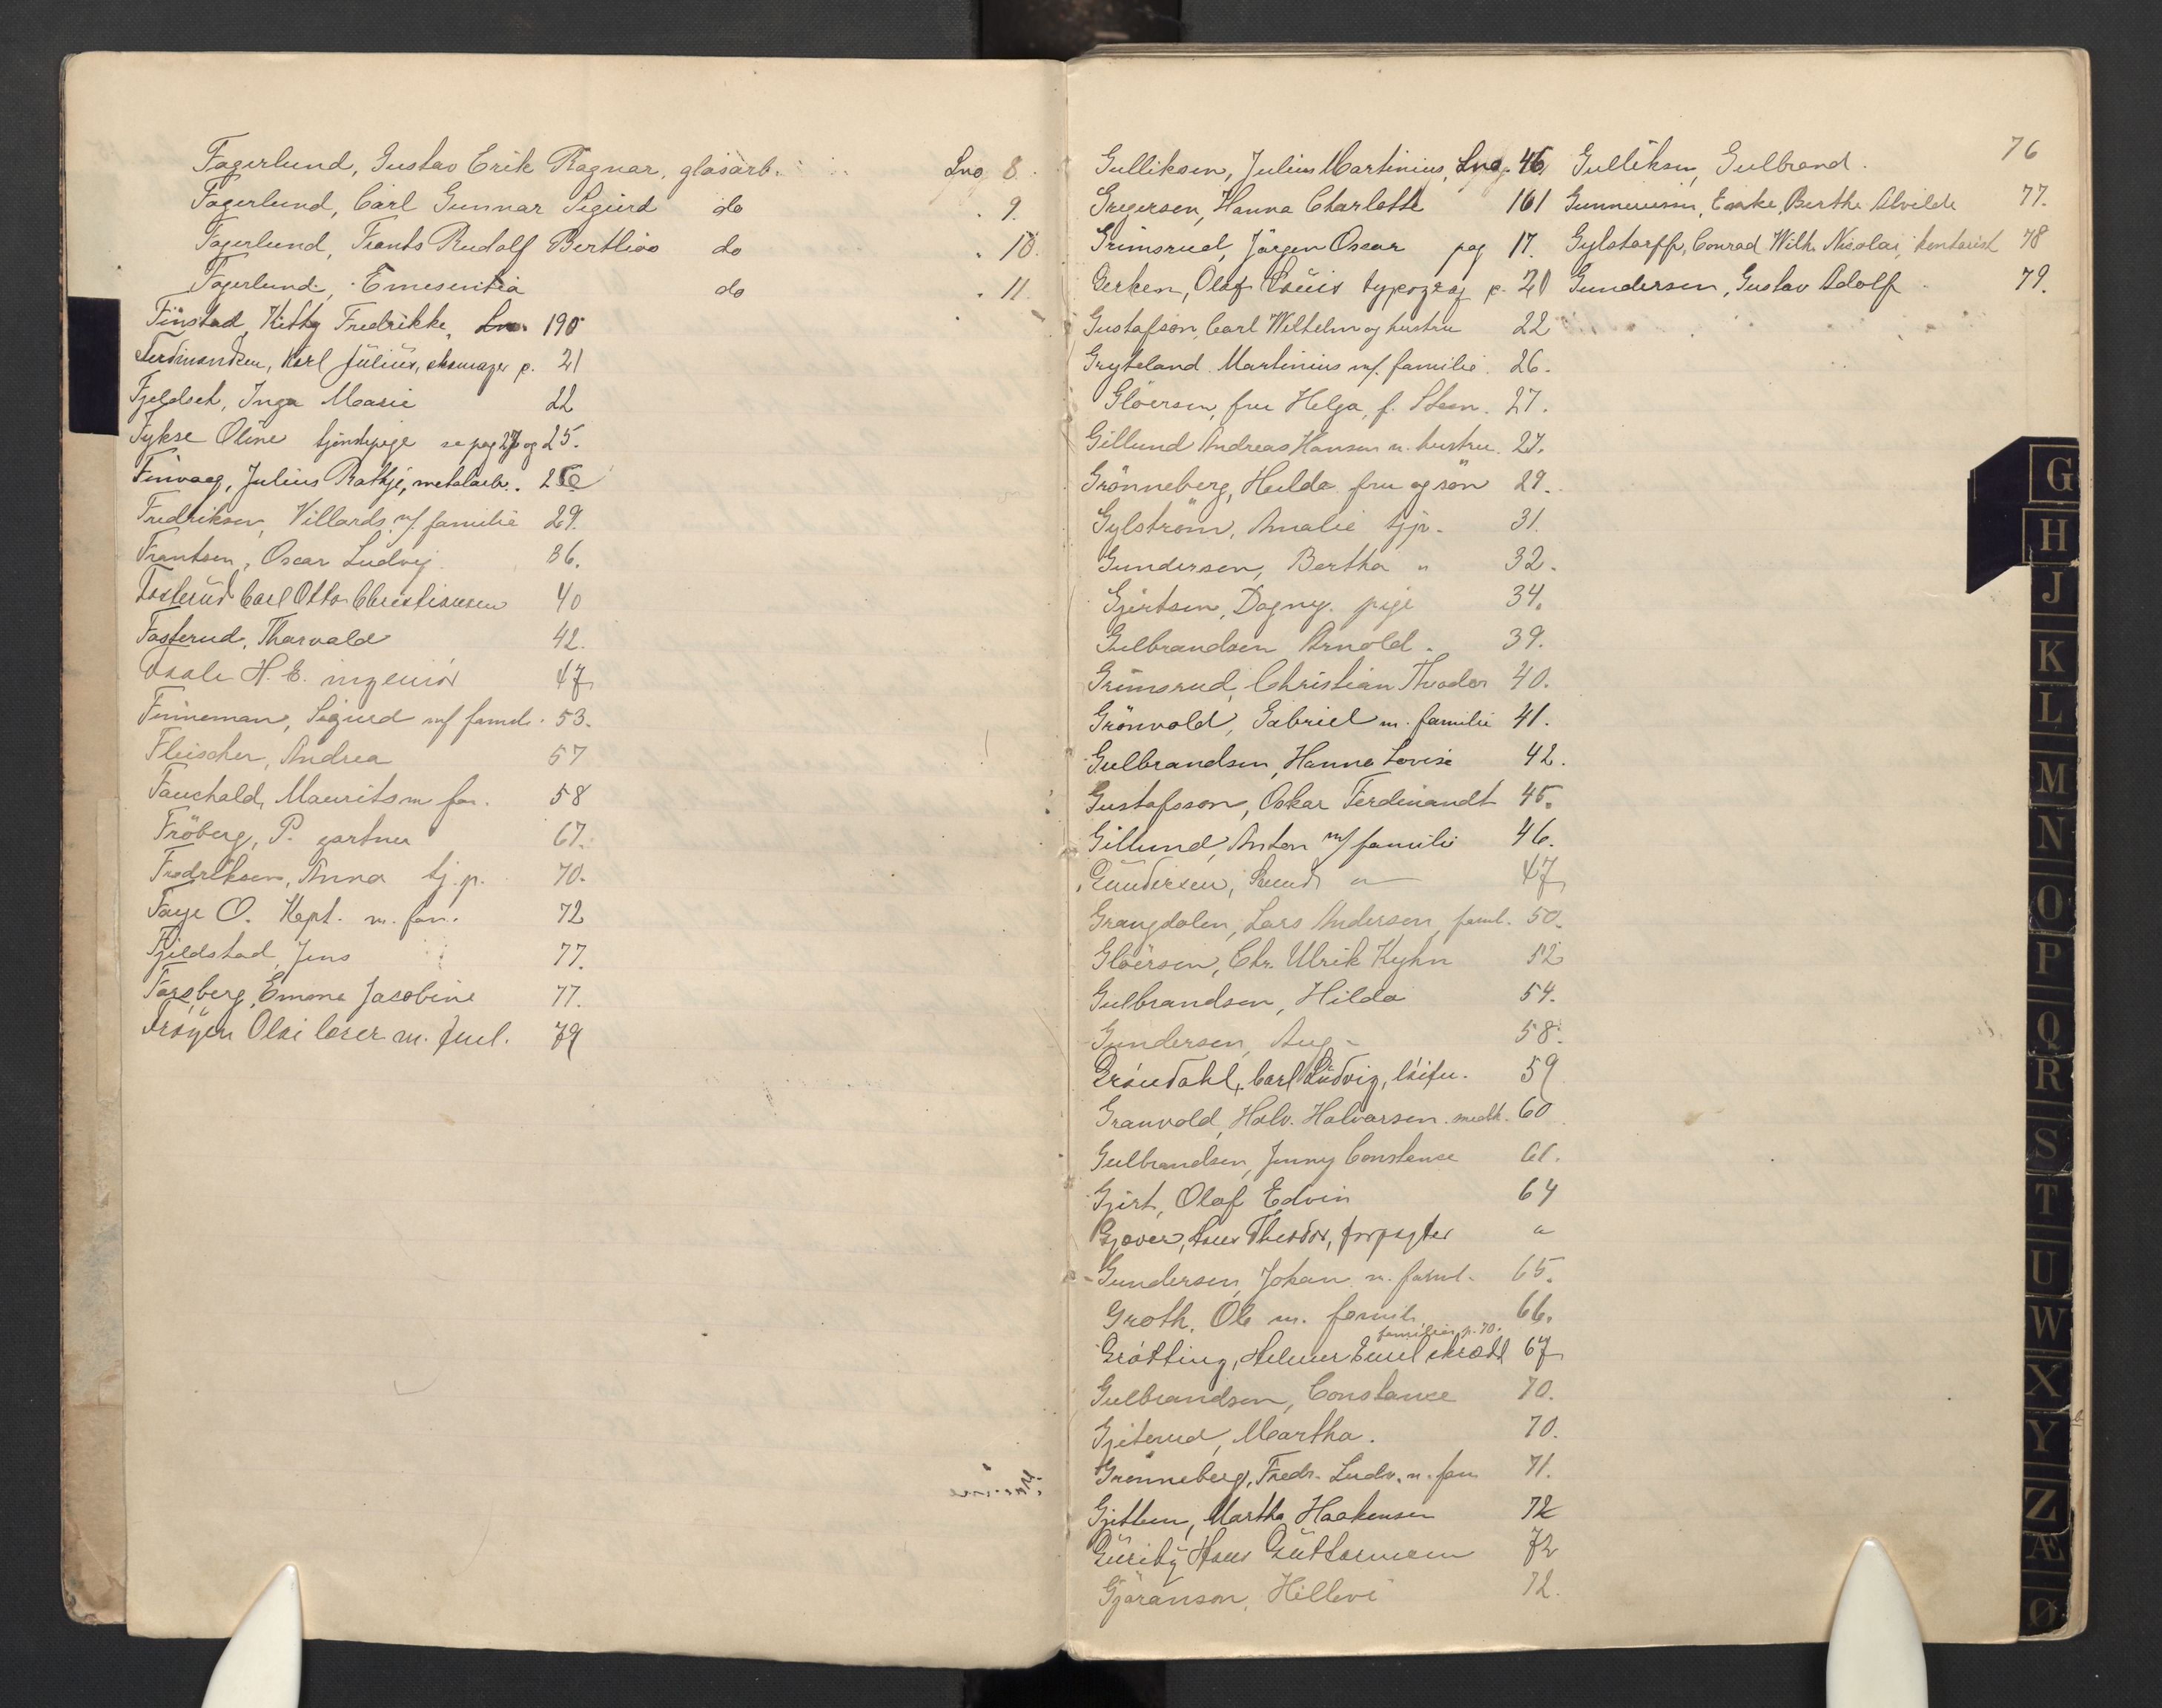 Fagerlund, Gustav Erik Ragnar, glasarb. Lno 8.
Fagerlund, Carl Gunnar Sigurd do " 9.
Fagerlund, Frants Rudolf do " 10.
Fagerlund, do " 11.
Finstad, Kitty Fredrikke, Lno. 190
Ferdinandsen, Karl Julius, skomager p. 21
Fjeldset, Inga Marie 22
Fykse Oline tjenstepige se pag 27 og 25.
Finvaag, Julius Rathje, metalarb.
Fredriksen, Villards m/ familie 29.
Frantsen, Oscar Ludvig 36.
Fosterud Carl Otto Christiansen 40
Fosterud, Thorvald 42.
H. E. ingeniör 47
Finneman, Sigurd m/ famil. 53.
Fleischer, Andrea 57
Fauchald, Maurits m fam. 58
Fröberg, P. gartner 67.
Fredriksen, Anna tj. p. 70.
Faye O. Kapt. m. fam. 72
Fjeldstad, Jens 77.
Forsberg, Emma Jacobine 77.
Fröyen m. fml. 79
Gulliksen, Julius Martinius, Lno. 46
Gregersen, Hanna Charlotte 161
Grimsrud, Jörgen Oscar pag 17.
Gerken, Olaf Louis typograf p. 20
Gustafson, Carl Wilhelm og hustru 22
Gryteland Martinius m/ familie 26.
Glöersen, fru Helga, f. Steen. 27.
Gillund Andreas Hansen m. hustru. 27.
Grönneberg, Hulda fru og sön 29.
Gylström, Amalie tjp. 31.
Gundersen, Bertha " 32.
Gjertsen, Dagny. pige 34.
Gulbrandsen Arnold. 39.
Grimsrud, Christian Theodor 40.
Grönvold, Gabriel m. familie 41.
Gulbrandsen, Hanna Lovise 42.
Gustafsson, Oskar Ferdinandt 45.
Gillund, Anton m/ familie 46.
Gundersen, " 47
Grangdalen, Lars Andersen, faml. 50.
Glöersen, Chr. Ulrik Kyhn 52
Gulbrandsen, Hilda 54.
Gundersen, Aug. 58.
Gröndahl, Carl Ludvig, löitn. 59
Granvold, Halv. Halvorsen. 60
Gulbrandsen, Jenny Constanse 61.
Gjert, Olaf Edvin 64
Gjøver, Theodor, forpagter "
Gundersen, Johan m. faml. 65.
Groth, Ole m. famili. 66.
familien p. 70.
Grötting, Helmer Emil skrædd 67
Gulbrandsen, Constance 70.
Gjeterud, Martha. 70.
Grønneberg, Fredr. Ludv. m. fam 71.
Gjetlum, Martha Haakensen 72
Hans Guttormsen 72
Gjöranson, Hillevi 72.
Gulliksen, Gulbrand. 76
Berthe Alvilde 77.
Gylstorff, Conrad Wilh. Nicolai, kontorist 78
Gundersen, Gustav Adolf 79.
G
H
J
K
L
M
N
O
P
Q
R
S
T
U
W
X
Y
Z
Æ
Ø